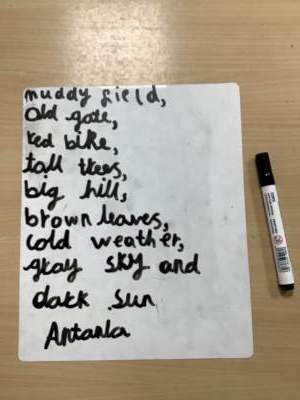 muddy field,
old gate,
red bike,
tall trees,
big hill,
brown leaves,
cold weather,
gray sky and
dark sun